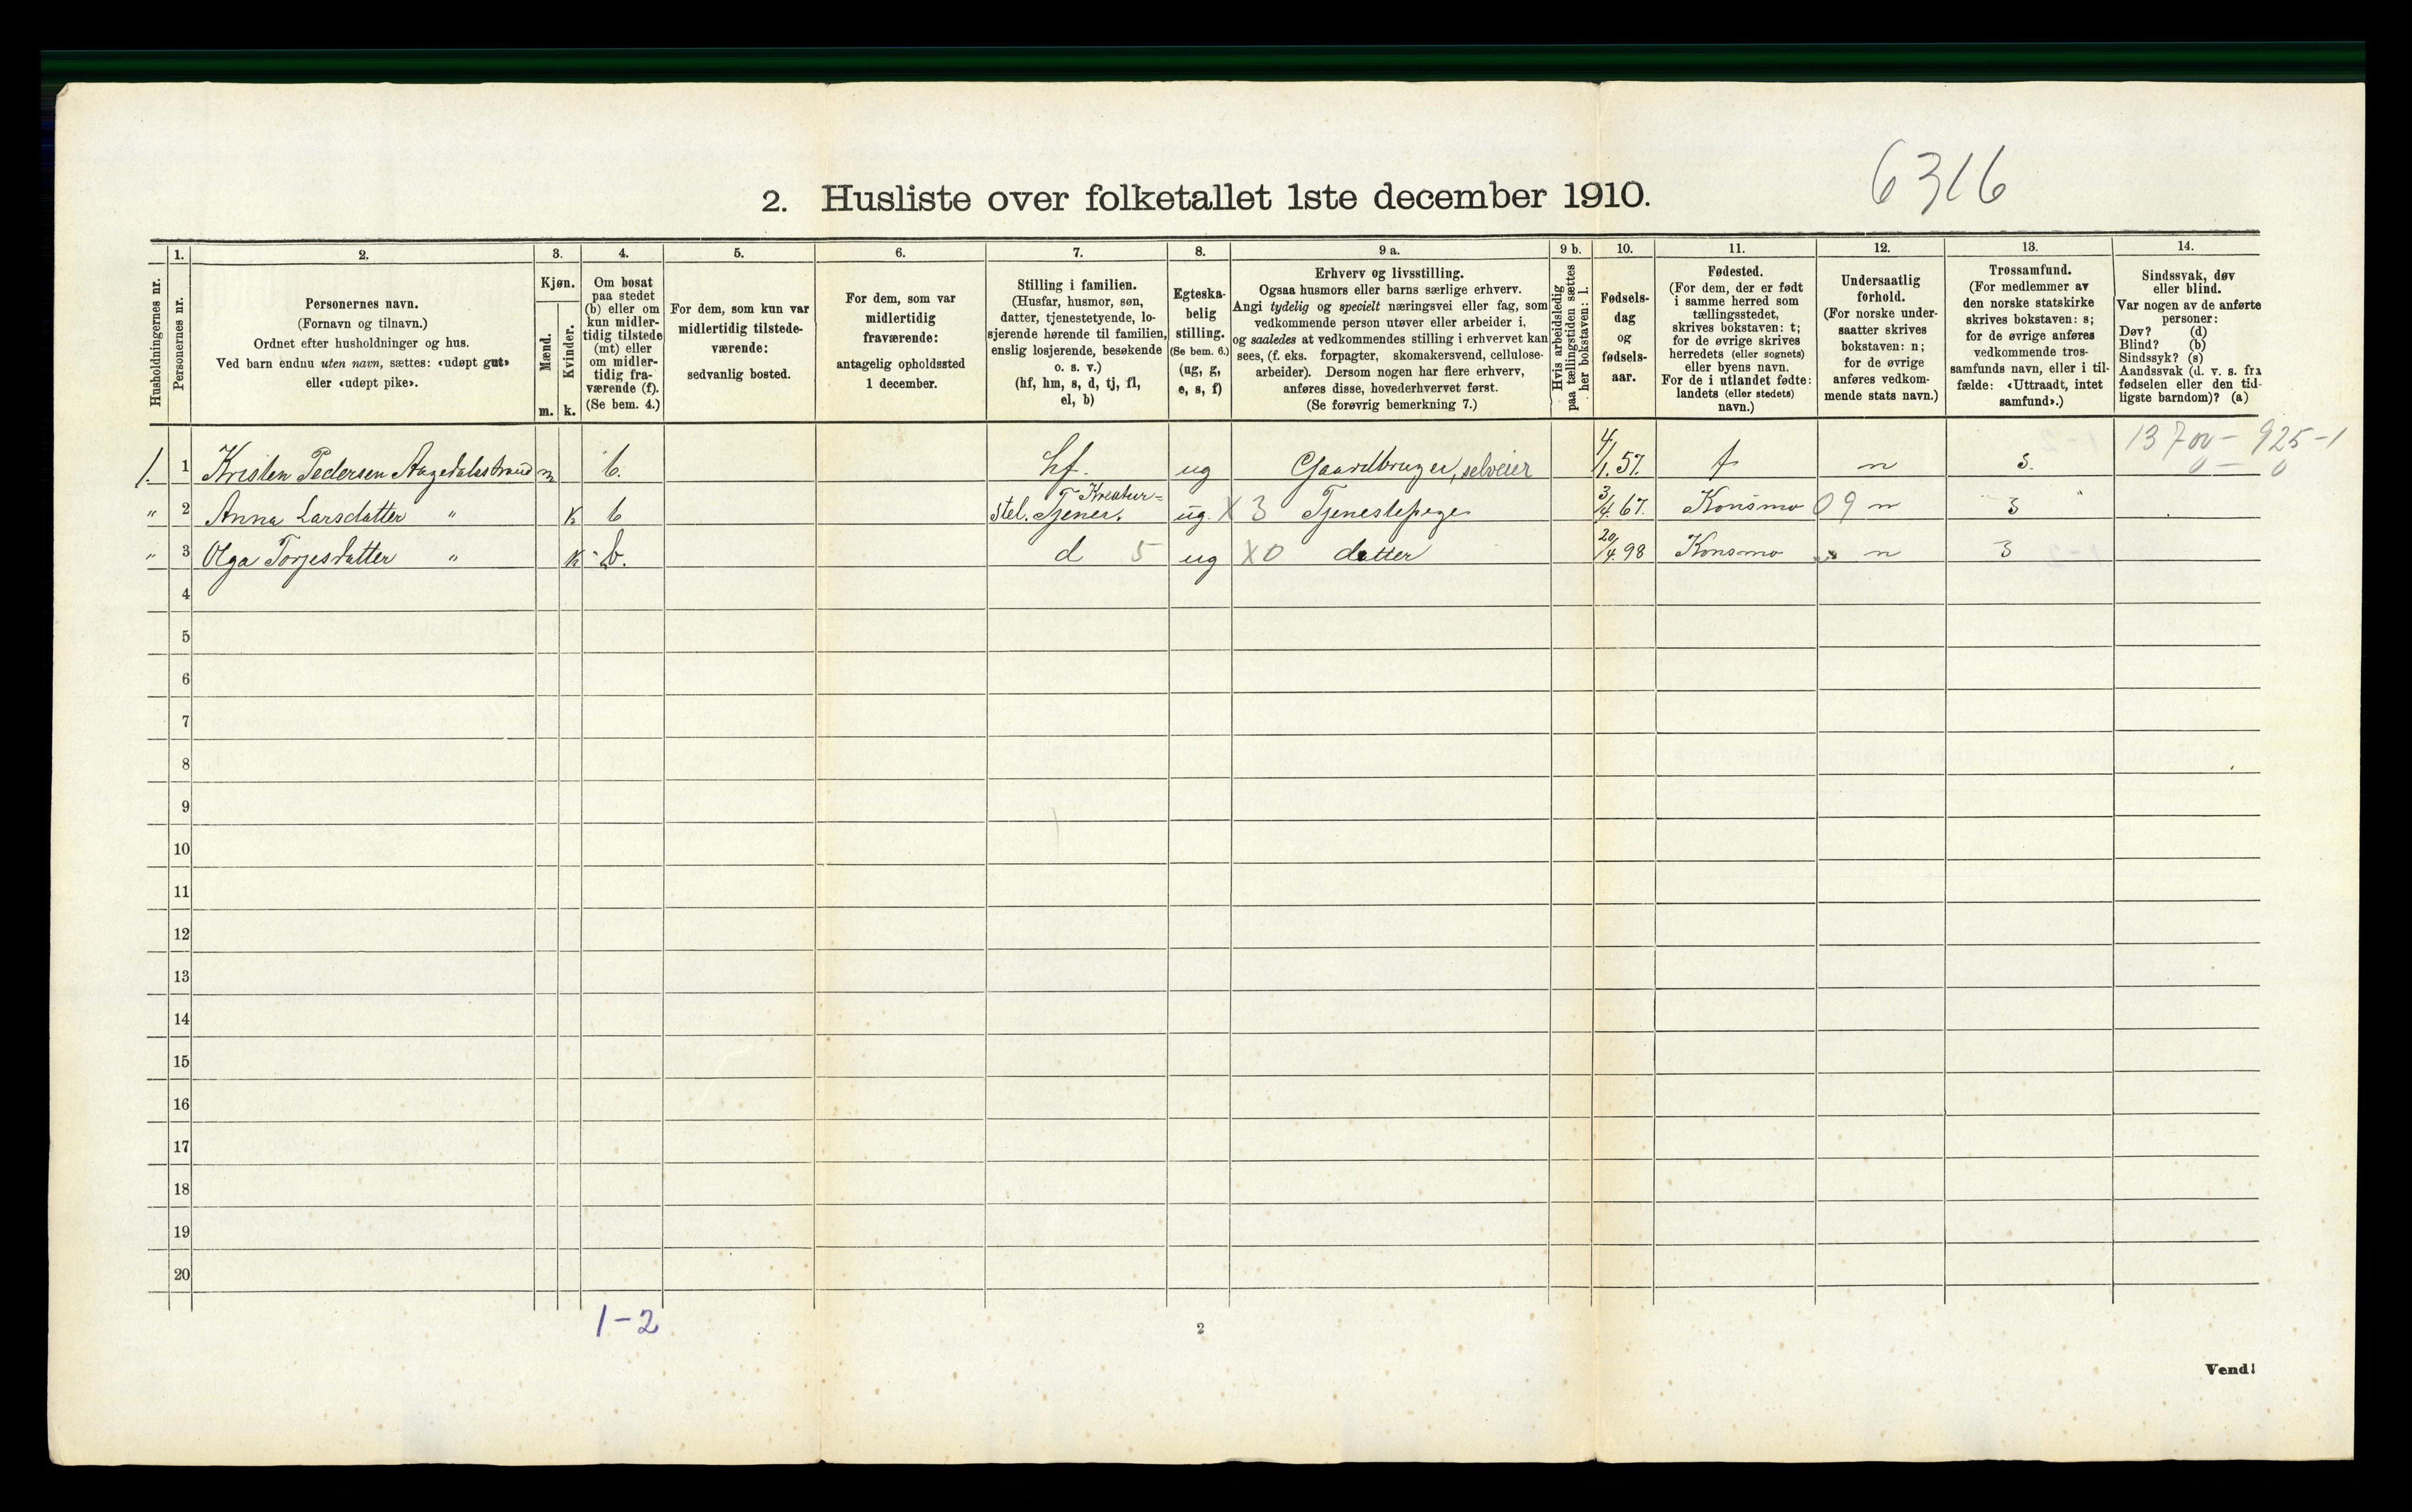 6316
2. Husliste over folketallet 1ste december 1910.
Husholdningernes nr.
1.
Personernes nr.
2.
Personernes navn.
(Fornavn og tilnavn.)
Ordnet efter husholdninger og hus.
Ved barn endnu uten navn, sættes: «udøpt gut»
eller «udøpt pike».
3.
Kjøn.
Mænd.
Kvinder.
m. k.
4.
Om bosat
paa stedet
(b) eller om
kun midler-
tidig tilstede
(mt) eller
om midler-
tidig fra-
værende (f).
(Se bem. 4.)
5.
For dem, som kun var
midlertidig tilstede-
værende:
sedvanlig bosted.
6.
For dem, som var
midlertidig
fraværende:
antagelig opholdssted
1 december.
7.
Stilling i familien.
(Husfar, husmor, søn,
datter, tjenestetyende, lo-
sjerende hørende til familien,
enslig losjerende, besøkende
o. s. v.)
(hf, hm, s, d, tj, fl,
el, b)
8.
Egteska-
belig
stilling.
(Se bem. 6.)
(ug, g,
e, s, f)
9 a.
Erhverv og livsstilling.
Ogsaa husmors eller barns særlige erhverv.
Angi tydelig og specielt næringsvei eller fag, som
vedkommende person utøver eller arbeider i,
og saaledes at vedkommendes stilling i erhvervet kan
sees, (f. eks. forpagter, skomakersvend, cellulose-
arbeider). Dersom nogen har flere erhverv,
anføres disse, hovederhvervet først.
(Se forøvrig bemerkning 7.)
9 b.
Hvis arbeidsledig
paa tællingstiden sættes
her bokstaven: l.
10.
Fødsels-
dag
og
fødsels-
aar.
11.
Fødested.
(For dem, der er født
i samme herred som
tællingsstedet,
skrives bokstaven: t;
for de øvrige skrives
herredets (eller sognets)
eller byens navn.
For de i utlandet fødte:
landets (eller stedets)
navn.)
12.
Undersaatlig
forhold.
(For norske under-
saatter skrives
bokstaven: n;
for de øvrige
anføres vedkom-
mende stats navn.)
13.
Trossamfund.
(For medlemmer av
den norske statskirke
skrives bokstaven: s;
for de øvrige anføres
vedkommende tros-
samfunds navn, eller i til-
fælde: «Uttraadt, intet
samfund».)
14.
Sindssvak, døv
eller blind.
Var nogen av de anførte
personer:
Døv? (d)
Blind? (b)
Sindssyk? (s)
Aandssvak (d. v. s. fra
fødselen eller den tid-
ligste barndom)? (a)
13700 - 925-1
0 - 0
1. 1 Kristen Pedersen Aagedalsstrand m b. hf. ug Gaardbruger, selveier 4/1.57. t n s.
" 2 Anna Larsdatter " k b Kreatur=
stel. Tjener. ug. X 3 Tjenestepige 3/4.67. Konsmo 09 n s
" 3 Olga Torjesdatter " k b. d 5 ug X0 datter 20/4.98 Konsmo " n s
4
5
6
7
8
9
10
11
12
13
14
15
16
17
18
19
20
1-2
2
Vend!